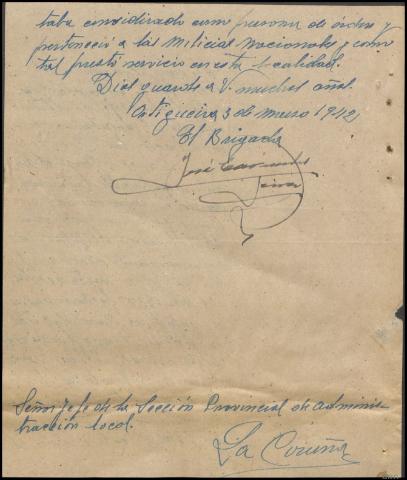 taba considerado como persona de orden y
perteneció a las Milicias Nacionales y como
tal prestó servicio en esta localidad.
Dios guarde a V. muchos años.
Ortigueira 3 de marzo 1942
El Brigada
José
Señor Jefe de la Sección Provincial de Adminis-
tracción local.
La Coruña